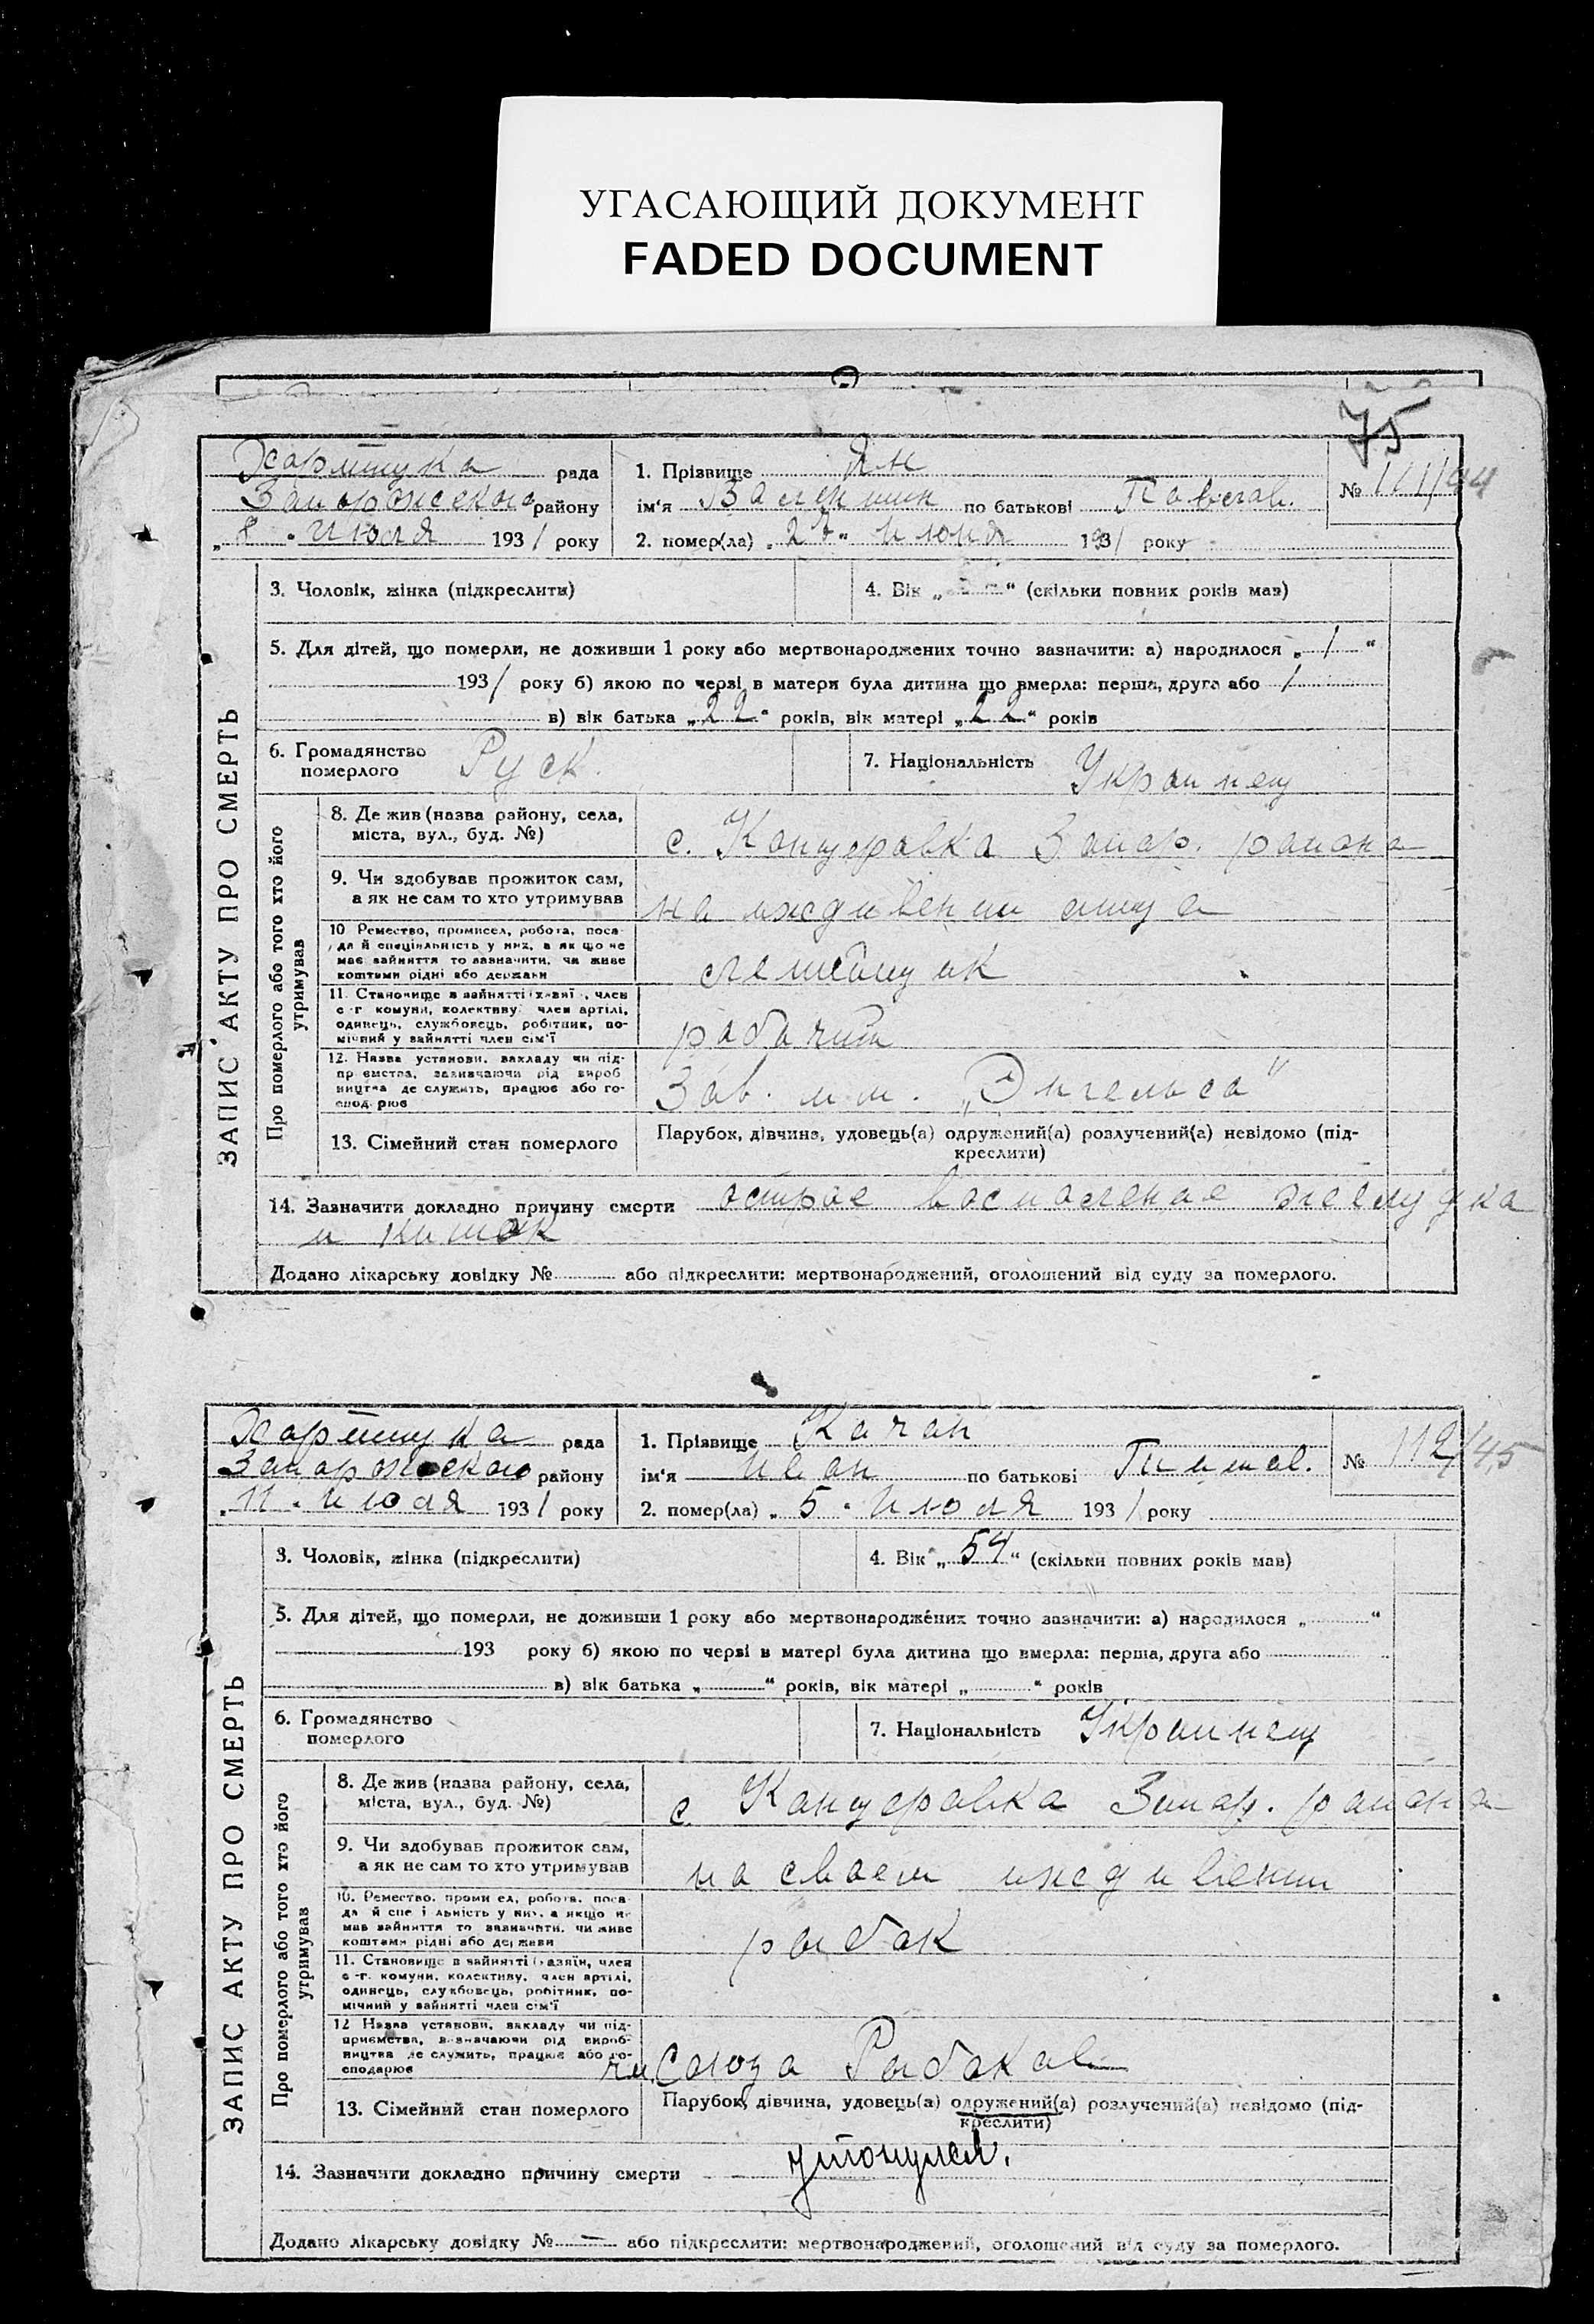 УГАСАЮЩИЙ ДОКУМЕНТ
FADED DOCUMENT
75
Хортицка рада
Запорожского району
„8" июля 1931 року
1. Прізвище Ян
ім'я Валентин по батькові Павлов.
2. помер(ла) „27" июня 1931 року
№ 111/44
ЗАПИС АКТУ ПРО СМЕРТЬ
3. Чоловік, жінка (підкреслити)
4. Вік „ " (скільки повних років мав)
5. Для дітей, що померли, не доживши 1 року або мертвонароджених точно зазначити: а) народилося „1"
1931 року б) якою по черзі в матери була дитина що вмерла: перша, друга або 1
в) вік батька „22" років, вік матері „22" років
6. Громадянство померлого Руск.
7. Національність Украинец
Про померлого або того хто його утримував
8. Де жив (назва району, села,
міста, вул., буд. №)
с. Канцеровка Запор. района
9. Чи здобував прожиток сам,
а як не сам то хто утримував
на иждивении отца
10 Ремество, промисел, робота, поса-
да й спеціяльність у них, а як що не
має зайняття то зазначити, чи живе
коштами рідні або держави
11. Становище в зайнятті (хазяїн, член
с-г. комуни, колективу, член артілі,
одинець, службовець, робітник, по-
мічний у зайнятті член сім'ї
рабочий
12. Назва установи, закладу чи під-
приємства, зазначаючи рід вироб-
ництва де служить, працює або го-
сподарює
Зав. им. „Энгельса"
13. Сімейний стан померлого
Парубок, дівчина, удовець(а) одружений(а) розлучений(а) невідомо (під-
креслити)
14. Зазначити докладно причину смерти острое воспаление желудка
и кишок
Додано лікарську довідку № або підкреслити: мертвонароджений, оголошений від суду за померлого.
Хортицка рада
Запорожского району
„11" июля 1931 року
1. Прізвище Качан
ім'я Иван по батькові Тимов.
2. помер(ла) „5" Июля 1931 року
№ 112/45
ЗАПИС АКТУ ПРО СМЕРТЬ
3. Чоловік, жінка (підкреслити)
4. Вік „54" (скільки повних років мав)
5. Для дітей, що померли, не доживши 1 року або мертвонароджених точно зазначити: а) народилося „ "
193 року б) якою по черзі в матері була дитина що вмерла: перша, друга або
в) вік батька „ " років, вік матері „ " років
6. Громадянство
померлого
7. Національність Украинец
Про померлого або того хто його утримував
8. Де жив (назва району, села,
міста, вул., буд. №)
с. Канцеровка Запор. района
9. Чи здобував прожиток сам,
а як не сам то хто утримував
на своем иждивении
10. Ремество, промисел, робота, поса-
да й спеціяльність у них, а якщо не
мав зайняття то зазначити, чи живе
коштами рідні або держави
рыбак
11. Становище в зайнятті (хазяїн, член
с-г. комуни, колективу, член артілі,
одинець, службовець, робітник, по-
мічний у зайнятті член сім'ї
12 Назва установи, закладу чи під-
приємства, зазначаючи рід вироб-
ництва де служить, працює або го-
сподарює
чл. Союза Рыбаков
13. Сімейний стан померлого
Парубок, дівчина, удовець(а) одружений(а) розлучений(а) невідомо (під-
креслити)
14. Зазначити докладно причину смерти утонулся.
Додано лікарську довідку № — або підкреслити: мертвонароджений, оголошений від суду за померлого.